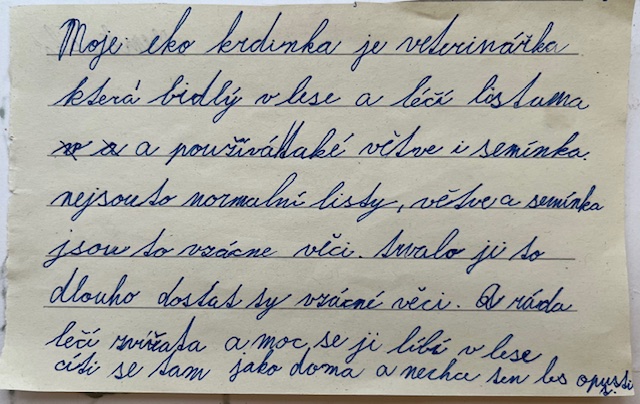 Moje eko krdinka je veterinářka
která bidlý v lese a léčí listama
a používá také větve i semínka.
nejsou to normalní listy, větve a semínka
jsou to vzácne věci. trvalo ji to
dlouho dostat ty vzácné věci. A ráda
léčí zvířata a moc se ji líbí v lese
cíti se tam jako doma a necha ten les opusti